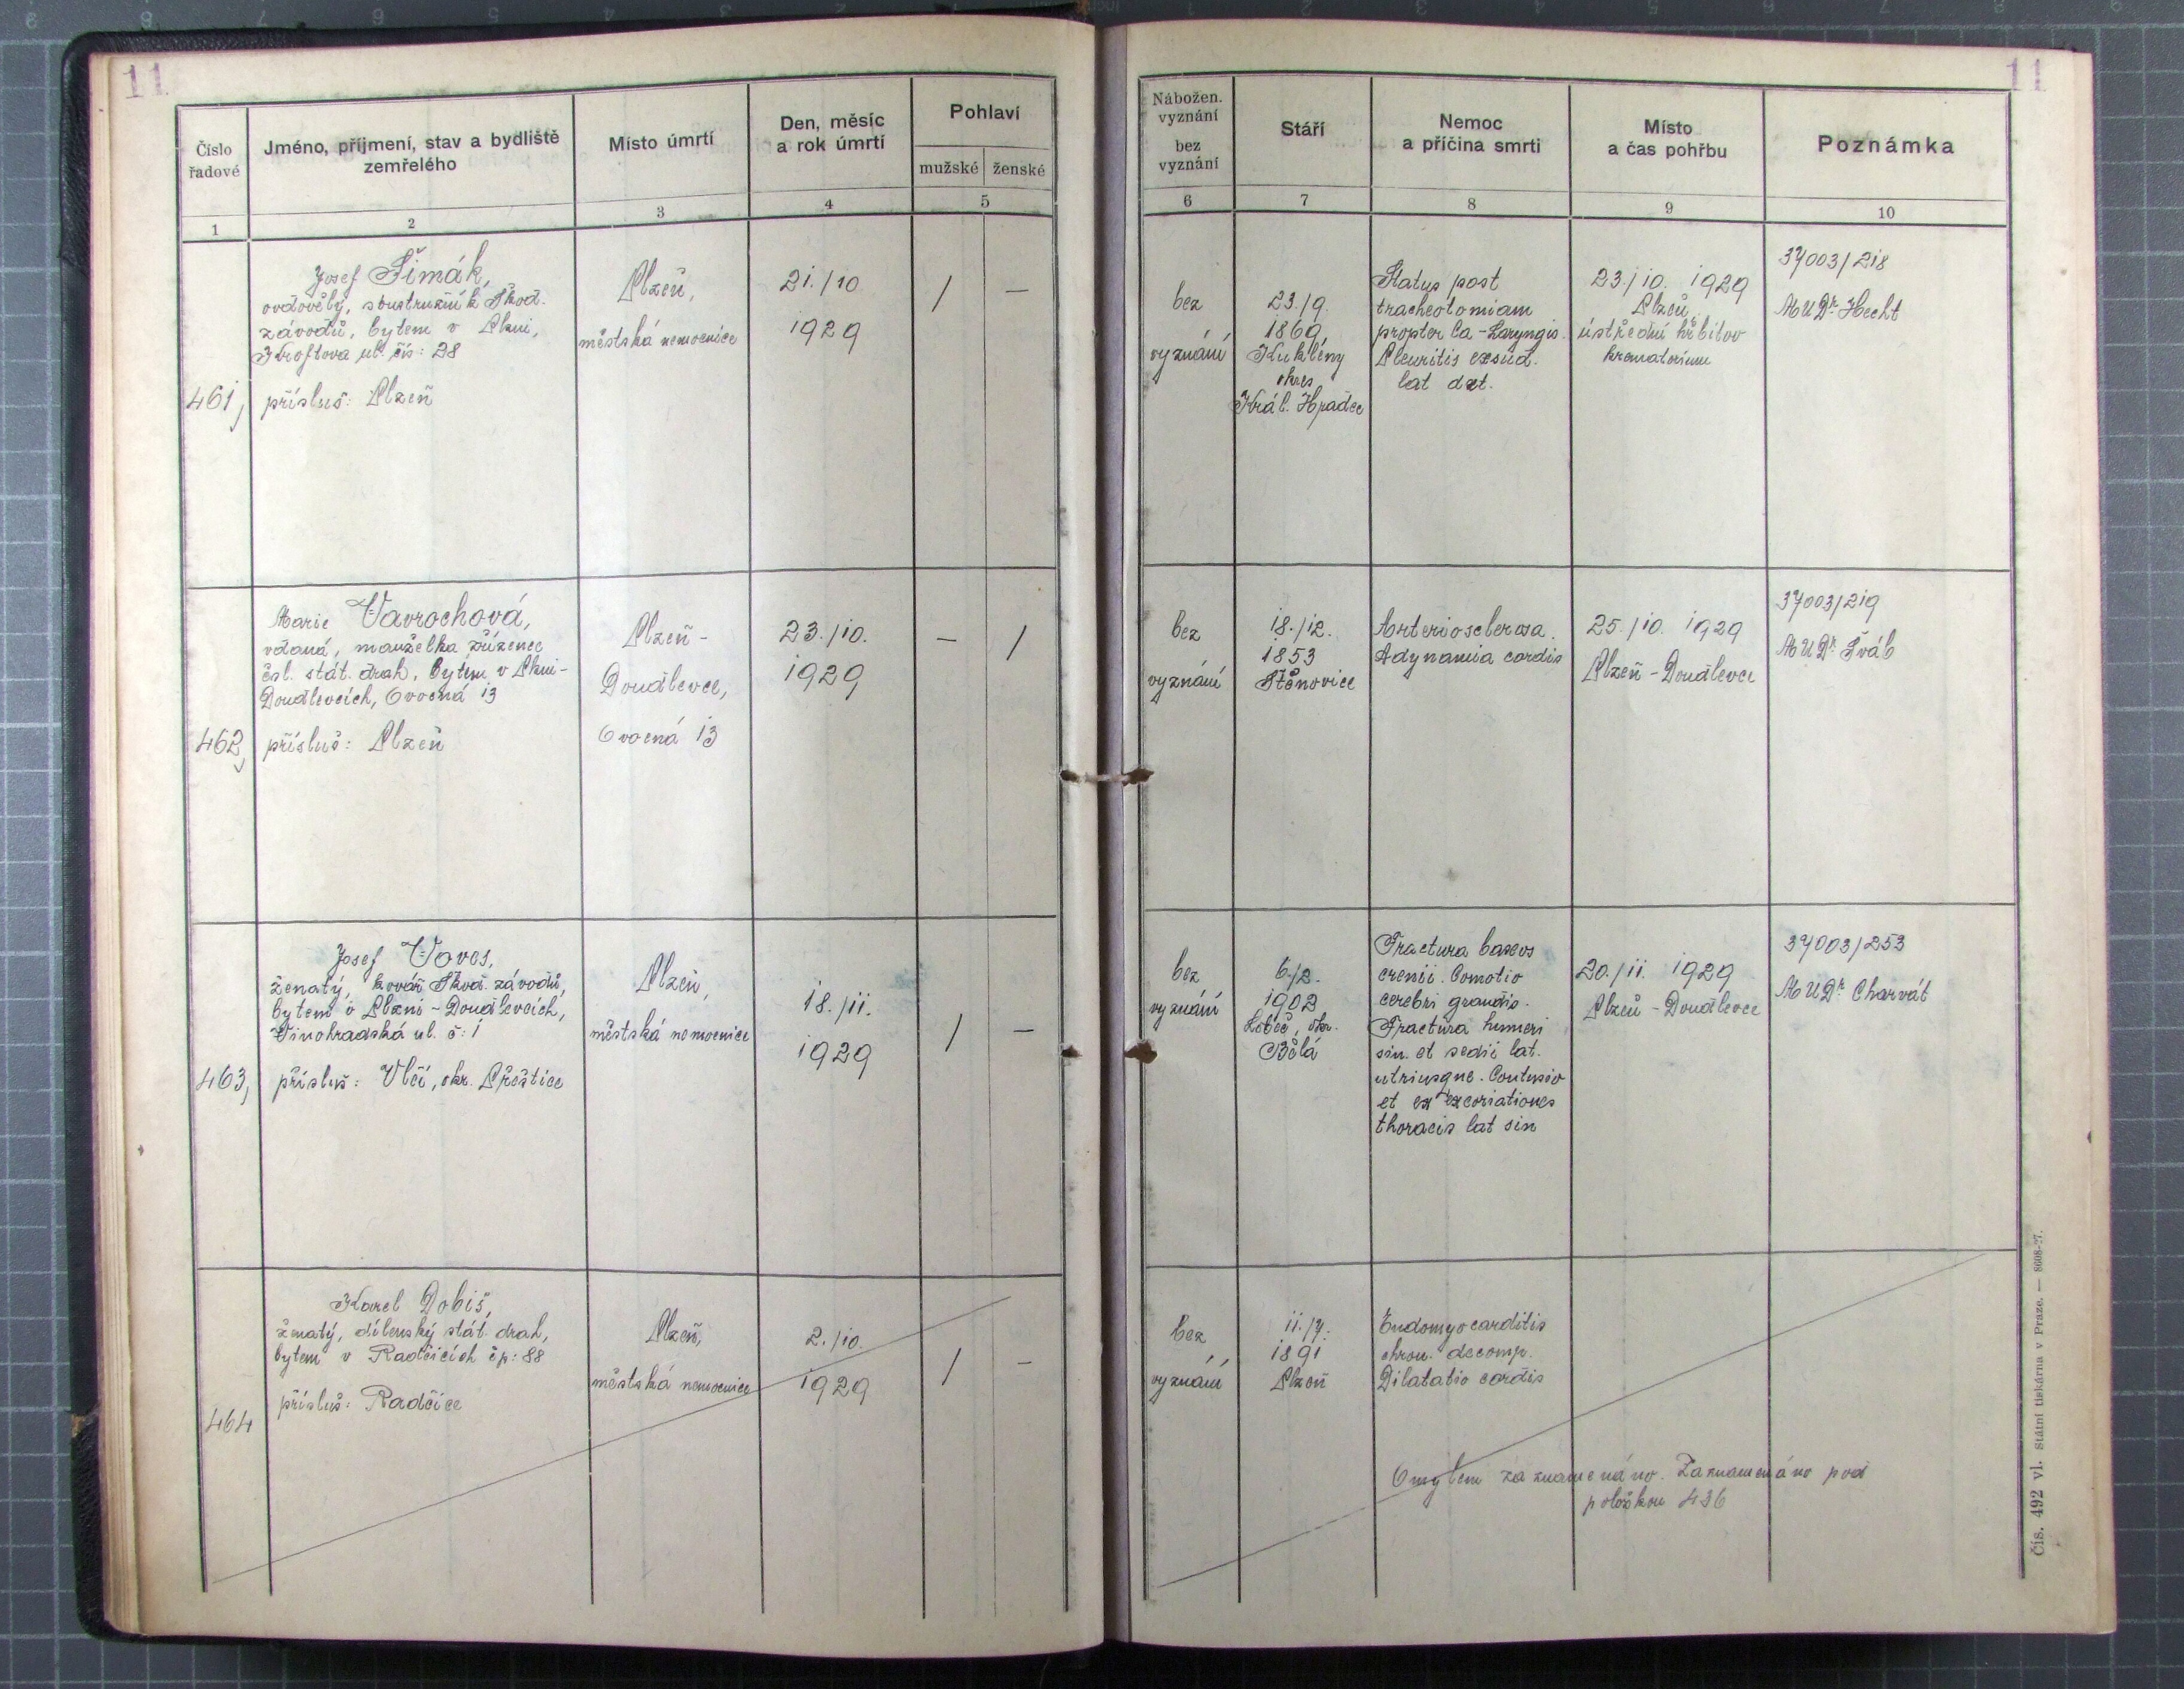 11
11
Číslo
řadové
Jméno, příjmení, stav a bydliště
zemřelého
Místo úmrtí
Den, měsíc
a rok úmrtí
Pohlaví
mužské
ženské
1
2
3
4
5
Nábožen.
vyznání
bez
vyznání
Stáří
Nemoc
a příčina smrti
Místo
a čas pohřbu
Poznámka
6
7
8
9
10
461,
Josef Šimák,
ovdovělý, soustružník Škod.
závodů, bytem v Plzni,
Kroftova ul. čís: 28
přísluš: Plzeň
Plzeň,
městská nemocnice
21./10
1929
/
—
bez
vyznání
23./9.
1869
Kuklény
okres
Král. Hradec
Status post
tracheotomiam
propter Ca-Laryngis.
Pleuritis exsud.
lat dxt.
23./10. 1929
Plzeň,
ústřední hřbitov
krematorium
37003/218
MUDr. Hecht
462,
Marie Vavrochová,
vdaná, manželka zřízence
čsl. stát. drah, bytem v Plzni-
Doudlevcích, Ovocná 13
přísluš: Plzeň
Plzeň-
Doudlevce,
Ovocná 13
23./10.
1929
—
/
bez
vyznání
18./12.
1853
Štěnovice
Arteriosclerosa.
Adynamia cordis
25./10. 1929
Plzeň-Doudlevce
37003/219
MUDr. Šváb
463,
Josef Voves,
ženatý, kovář Škod. závodů,
bytem v Plzni-Doudlevcích,
Vinohradská ul. č: 1
přísluš: Vlčí, okr. Přeštice
Plzeň,
městská nemocnice
18./11.
1929
/
—
bez
vyznání
6./2.
1902
Lobeč, okr.
Bělá
Fractura baseos
crenii. Comotio
cerebri grandis.
Fractura humeri
sin. et sedii lat.
utriusque. Contusio
et ex excoriationes
thoracis lat sin
20./11. 1929
Plzeň-Doudlevce
37003/253
MUDr. Charvát
464
Karel Dobiš,
ženatý, dílenský stát. drah,
bytem v Radčicích čp: 88
přísluš: Radčice
Plzeň,
městská nemocnice
2./10.
1929
/
—
bez
vyznání
11./7.
1891
Plzeň
Endomyocarditis
chron. decomp.
Dilatatio cordis
Omylem zaznamenáno. Zaznamenáno pod
položkou 436
Čís. 492 vl. Státní tiskárna v Praze. — 8608-27.